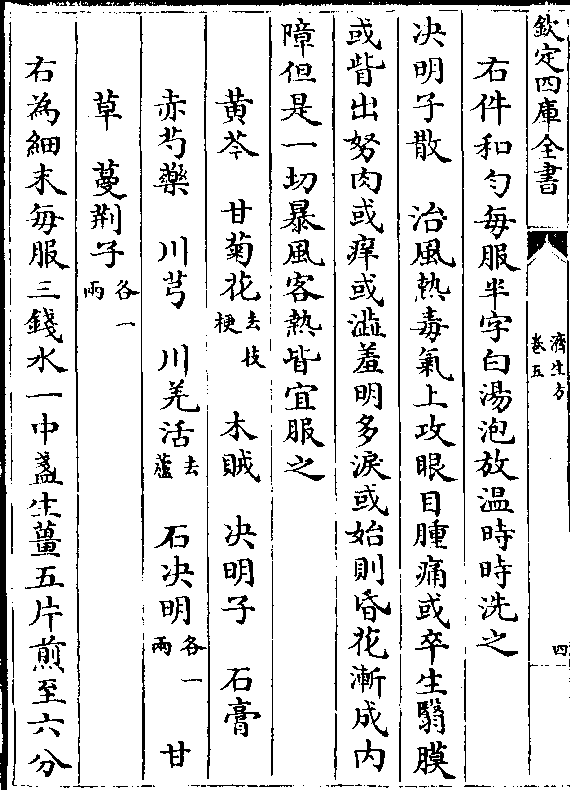 欽定四庫全書
濟生方
卷五
四
右件和勻每服半字白湯泡放温時時洗之
決明子散　治風熱毒氣上攻眼目腫痛或卒生翳膜
或眥出努肉或痒或澁羞明多淚或始則昏花漸成内
障但是一切暴風客熱皆宜服之
黄芩　甘菊花去枝梗　木賊　决明子　石膏
赤芍藥　川芎　川羌活去蘆　石决明各一兩　甘
草　蔓荆子各一兩
右為細末每服三錢水一中盞生薑五片煎至六分